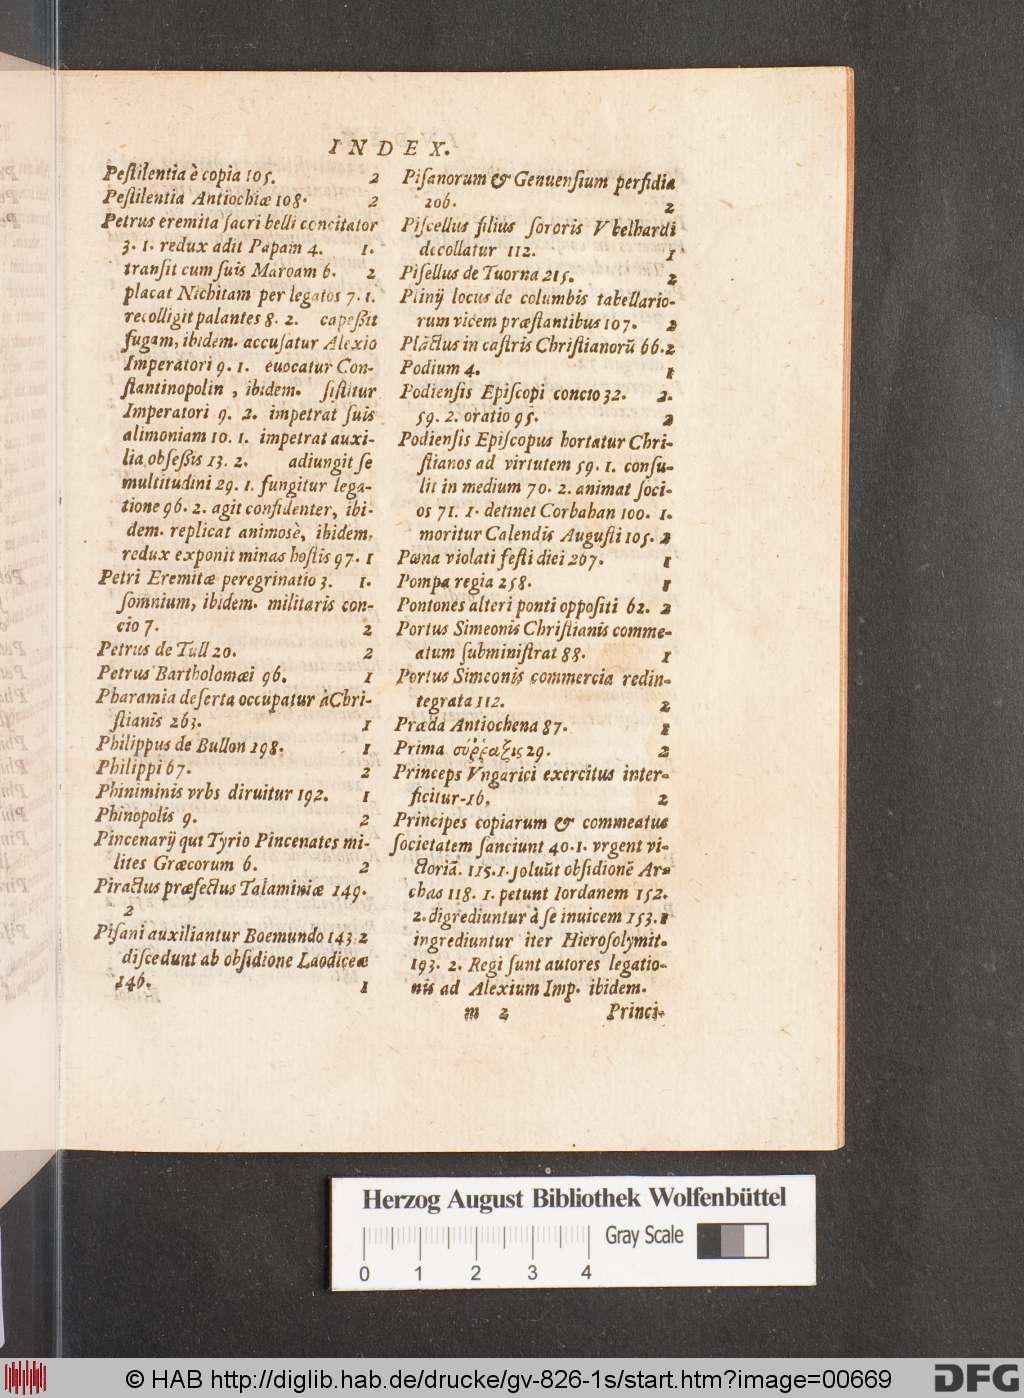 INDEX.
Peſtilentia è copia 105. 2
Peſtilentia Antiochiæ 108. 2
Petrus eremita ſacri belli concitator
3. 1. redux adit Papam 4. 1.
tranſit cum ſuis Maroam 6. 2
placat Nichitam per legatos 7. 1.
recolligit palantes 8. 2. capeßit
fugam, ibidem. accuſatur Alexio
Imperatori 9. 1. euocatur Con-
ſtantinopolin, ibidem. ſiſtitur
Imperatori 9. 2. impetrat ſuis
alimoniam 10. 1. impetrat auxi-
lia obſeßis 13. 2. adiungit ſe
multitudini 29. 1. fungitur lega-
tione 96. 2. agit confidenter, ibi-
dem. replicat animosè, ibidem,
redux exponit minas hoſtis 97. 1
Petri Eremitæ peregrinatio 3. 1.
ſomnium, ibidem. militaris con-
cio 7. 2
Petrus de Tull 20. 2
Petrus Bartholomæi 96. 1
Pharamia deſerta occupatur à Chri-
ſtianis 263. 1
Philippus de Bullon 198. 1
Philippi 67. 2
Phiniminis vrbs diruitur 192. 1
Phinopolis 9. 2
Pincenarij qui Tyrio Pincenates mi-
lites Græcorum 6. 2
Piractus præfectus Talaminiæ 149.
2
Piſani auxiliantur Boemundo 143. 2
diſcedunt ab obſidione Laodiceæ
146. 1
Piſanorum & Genuenſium perfidia
206. 2
Piſcellus filius ſororis Vbelhardi
decollatur 112. 1
Piſellus de Tuorna 215. 2
Plinij locus de columbis tabellario-
rum vicem præſtantibus 107. 2
Plāctus in caſtris Chriſtianorū 66. 2
Podium 4. 1
Podienſis Epiſcopi concio 32. 2.
59. 2. oratio 95. 2
Podienſis Epiſcopus hortatur Chri-
ſtianos ad virtutem 59. 1. conſu-
lit in medium 70. 2. animat ſoci-
os 71. 1. detinet Corbahan 100. 1.
moritur Calendis Auguſti 105. 2
Pœna violati feſti diei 267. 1
Pompa regia 258. 1
Pontones alteri ponti oppoſiti 62. 2
Portus Simeonis Chriſtianis comme-
atum ſubminiſtrat 88. 1
Portus Simeonis commercia redin-
tegrata 112. 2
Præda Antiochena 87. 1
Prima σύῤῥαξις 29. 2
Princeps Vngarici exercitus inter-
ficitur 16. 2
Principes copiarum & commeatus
ſocietatem ſanciunt 40. 1. vrgent vi-
ctoriā. 115. 1. ſoluūt obſidionē Ar-
chas 118. 1. petunt Iordanem 152.
2. digrediuntur à ſe inuicem 153. 1
ingrediuntur iter Hieroſolymit.
193. 2. Regi ſunt autores legatio-
nis ad Alexium Imp. ibidem.
m 2 Princi-
Herzog August Bibliothek Wolfenbüttel
Gray Scale
0 1 2 3 4
© HAB http://diglib.hab.de/drucke/gv-826-1s/start.htm?image=00669
DFG